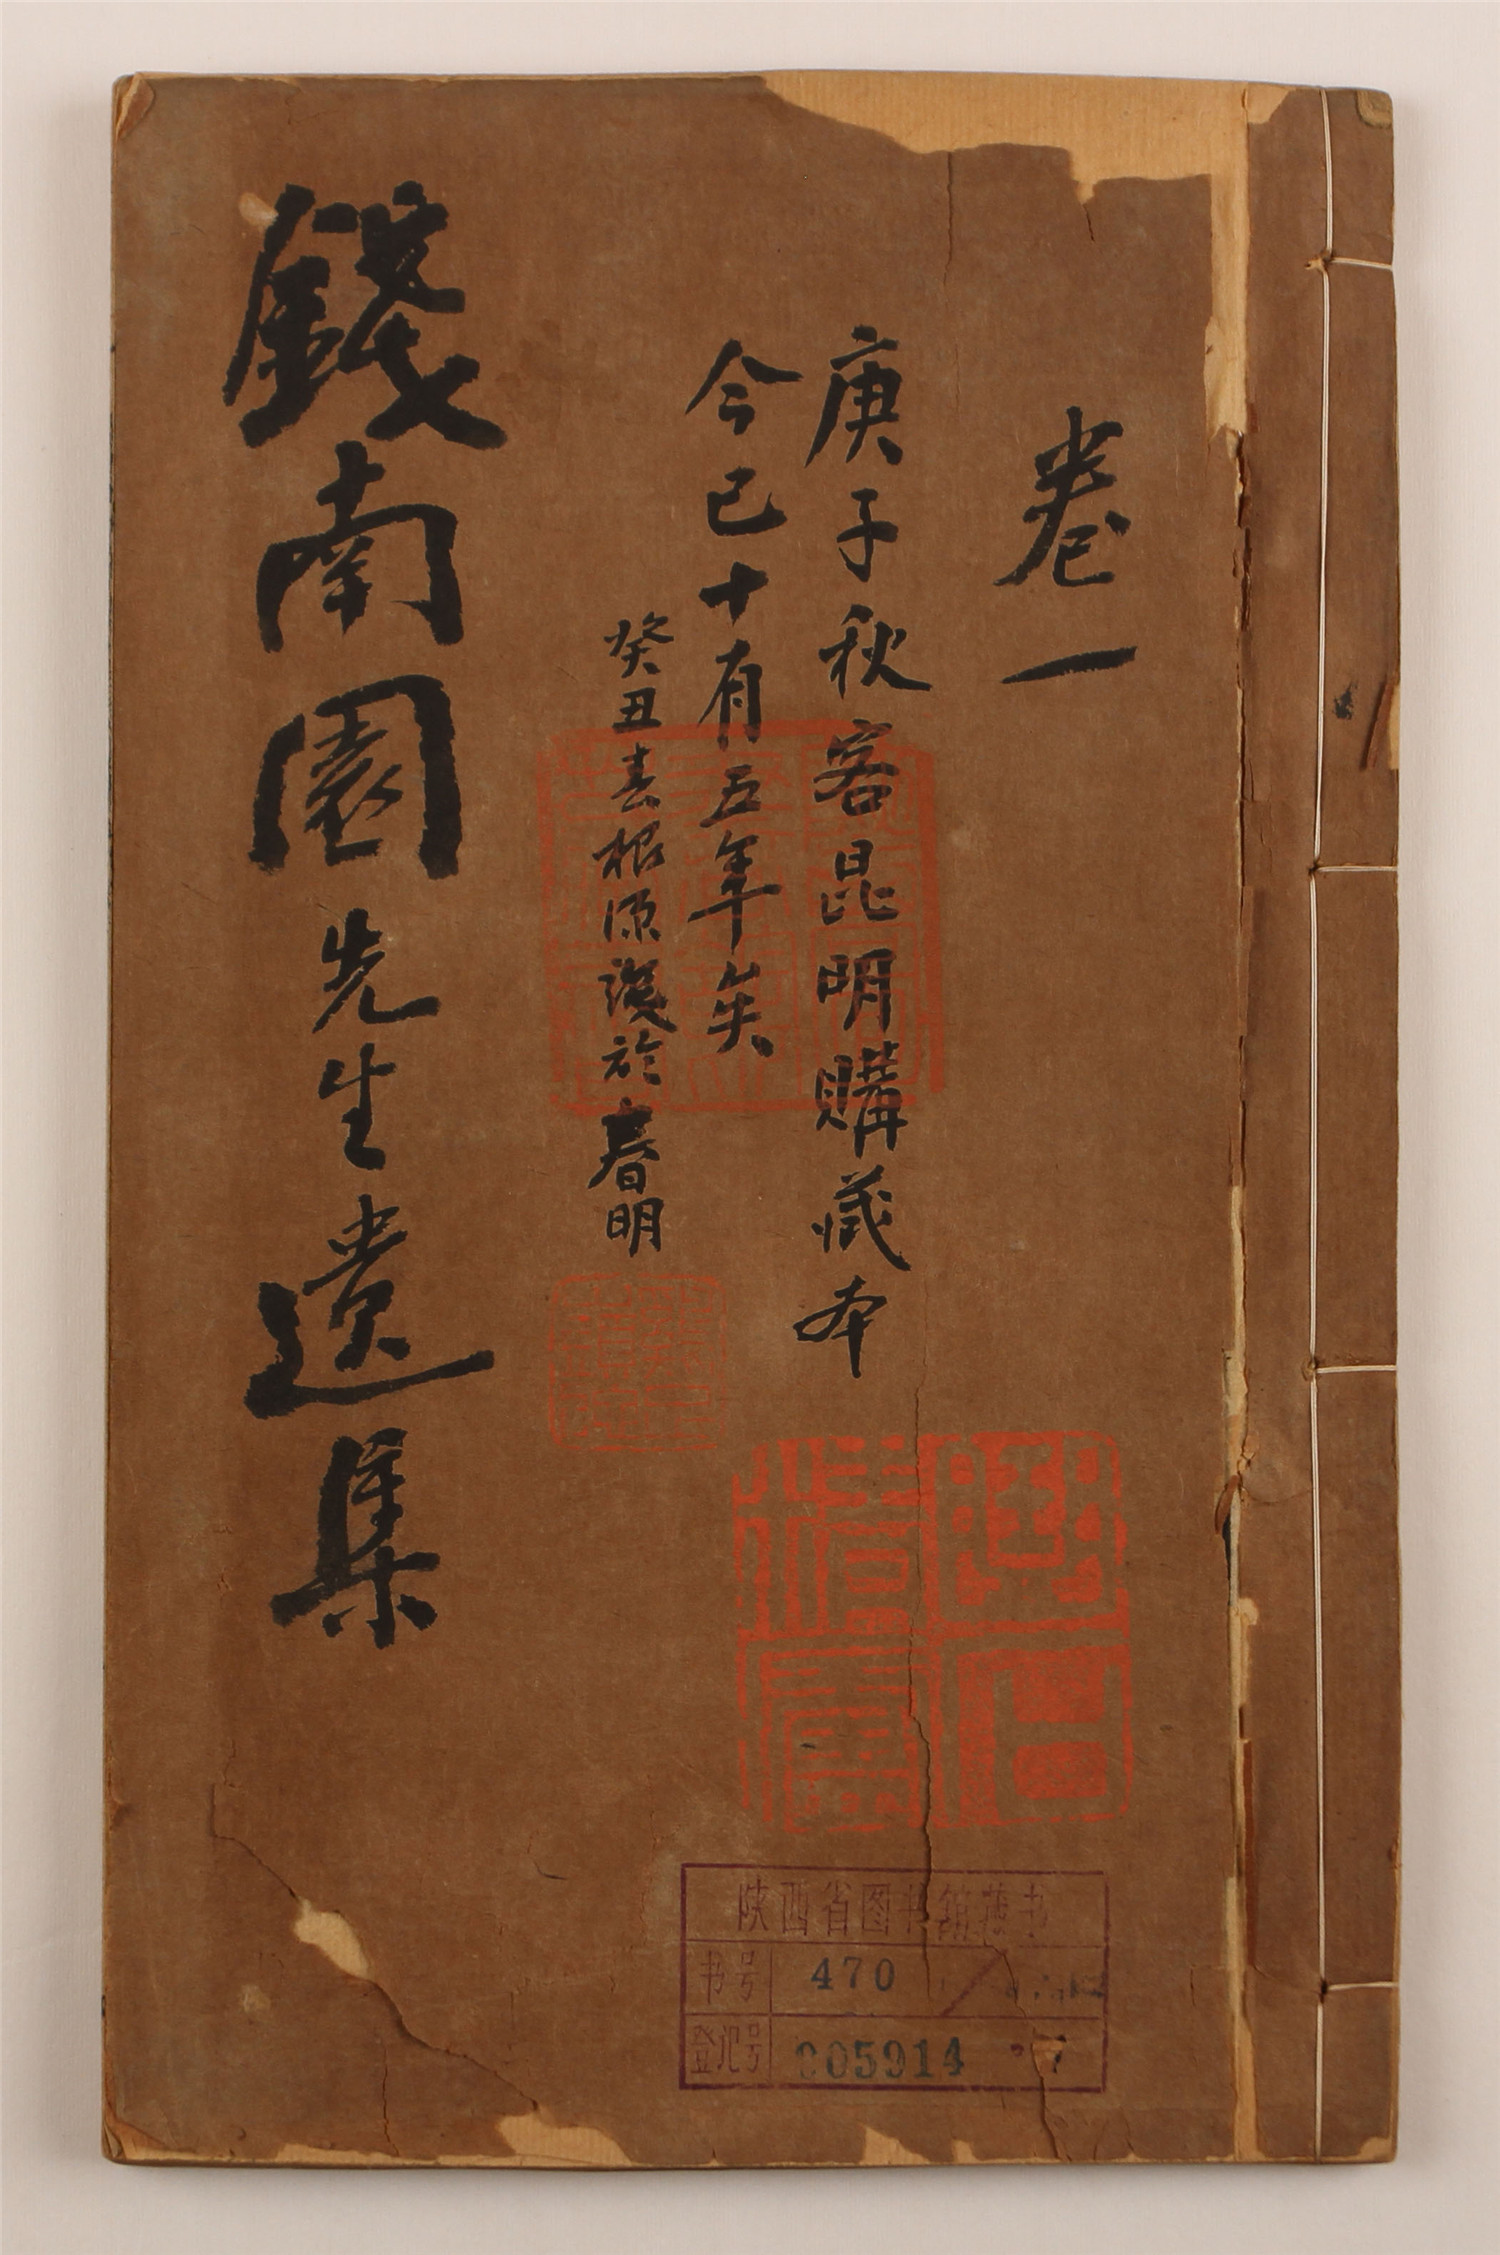 卷一
庚子秋客昆明購藏本
今已十有五年矣
癸丑春根源識於春明
錢南園先生遺集
陕西省图书馆藏书
书号 470
登记号 005914